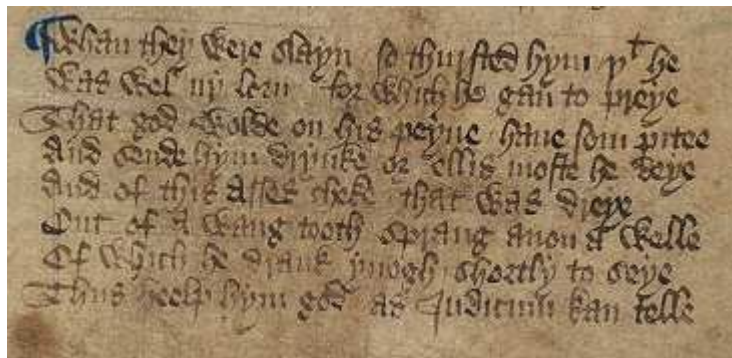 ¶ Whan they were slayn / so thursted hym þͭ he
Was wel ny lorn / for which he gan to preye
That god wolde on his peyne / haue som pitee
And sende hym drynke or ellis moste he deye
And of this asses cheke / that was dreye
Out of a wang tooth sprang anon a welle
Of which he drank ynogh / shortly to seye
Thus heelp hym god as Iudicum kan telle